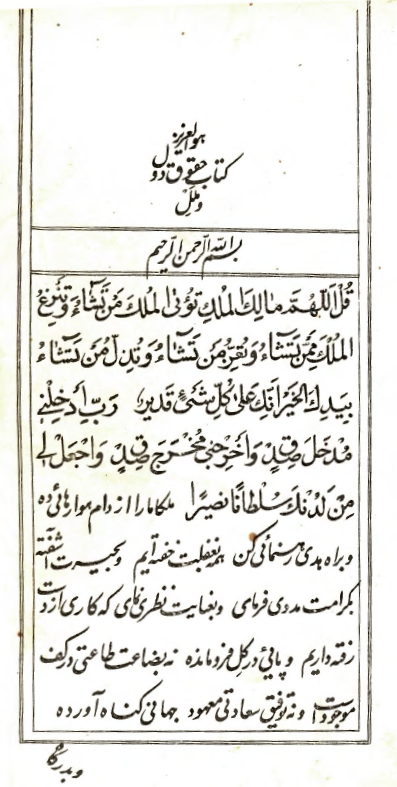 هوالعزیز
کتاب حقوق دول
و ملل
بسم الله الرحمن الرحیم
قُلِ اللّٰهُمَّ مالِكَ المُلْكِ تُؤتی المُلكَ مَن تَشٰاءُ وَتَنزِعُ
المُلكَ مِمَّن تَشٰاءُ وَ تُعِزُّ مَن تَشٰاءُ وَ تُذِلُّ مَن تَشٰاءُ
بِیَدِكَ الخَیرُ اِنَّكَ عَلیٰ كُلِّ شَئءٍ قَدیرٌ رَبِّ اَدخِلْنی
مُدْخَلَ صِدْقٍ وَ اَخرِجنی مُخْرَجَ صِدْقٍ وَاجْعَل لی
مِن لَدُنكَ سُلْطانًا نَصیرًا ملکا ما را از دام هوا رهائی ده
و براه هدی رهنمائی کن همه بغفلت خفته‌ایم و بحیرت آشفته
بکرامت مددی فرمای و بعنایت نظری نمای که کاری از دست
رفته داریم و پائی در گل فرو مانده نه بضاعت طاعتی در کف
موجود است و نه توفیق سعادتی معهود جهانی گناه آورده
و بدرگاه